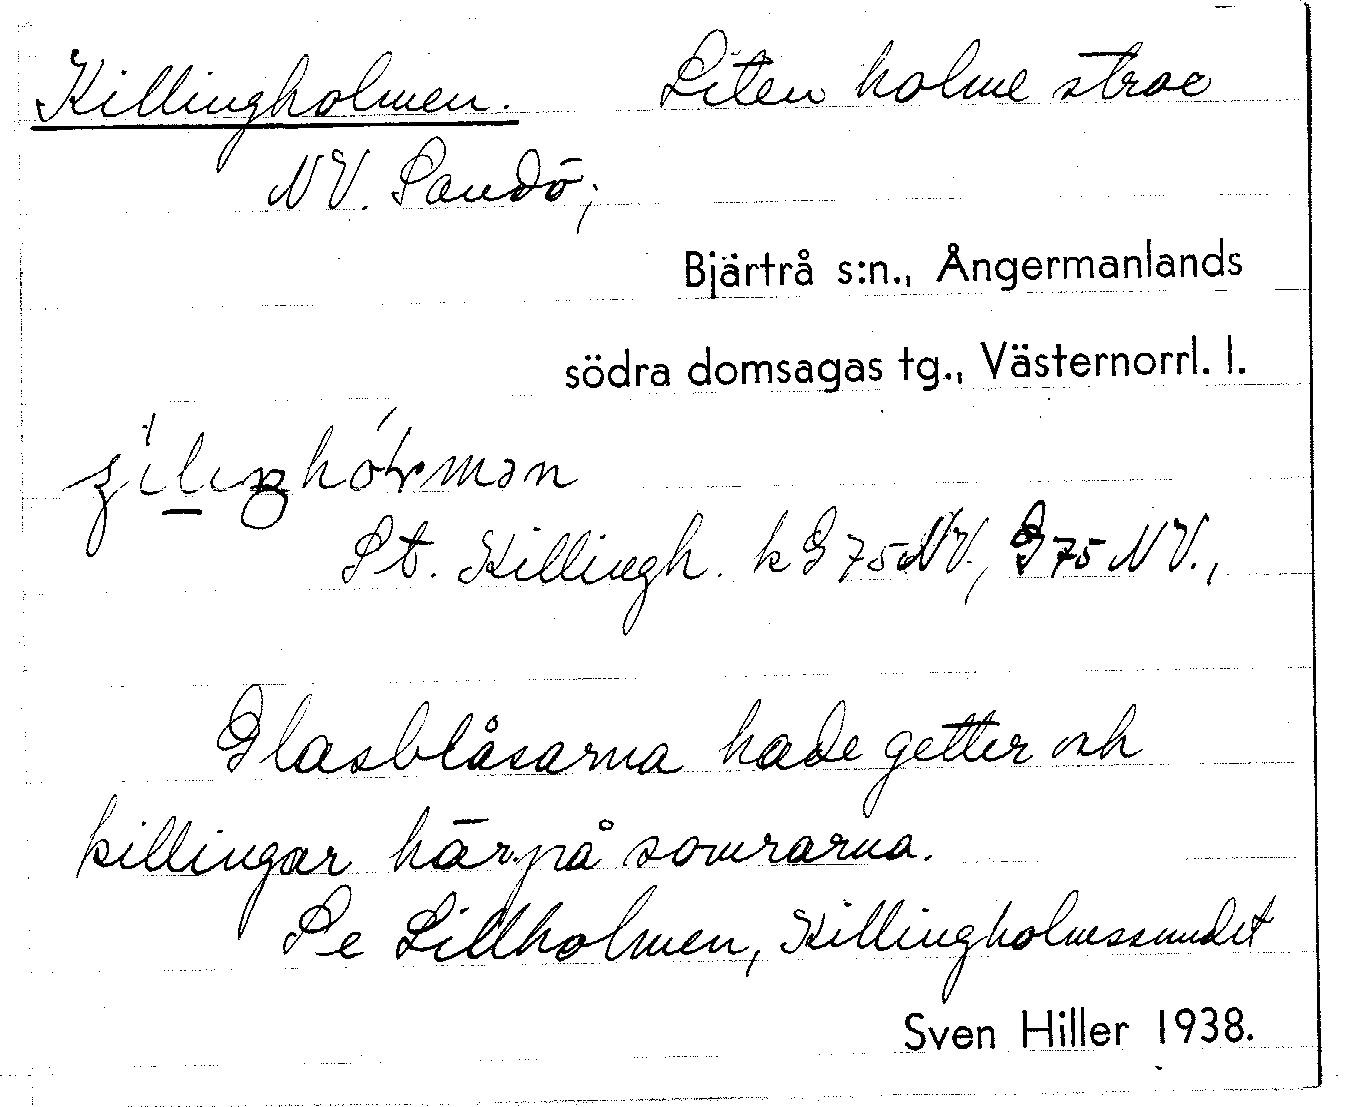 Killingholmen. Liten holme strax
NV. Sandö;
Bjärtrå s:n., Ångermanlands
södra domsagas tg., Västernorrl. l.
St. Killingh. k G75NV., G75 NV.,
Glasblåsarna hade getter och
killingar härpå somrarna.
Se Lillholmen, Killingholmssundet
Sven Hiller 1938.